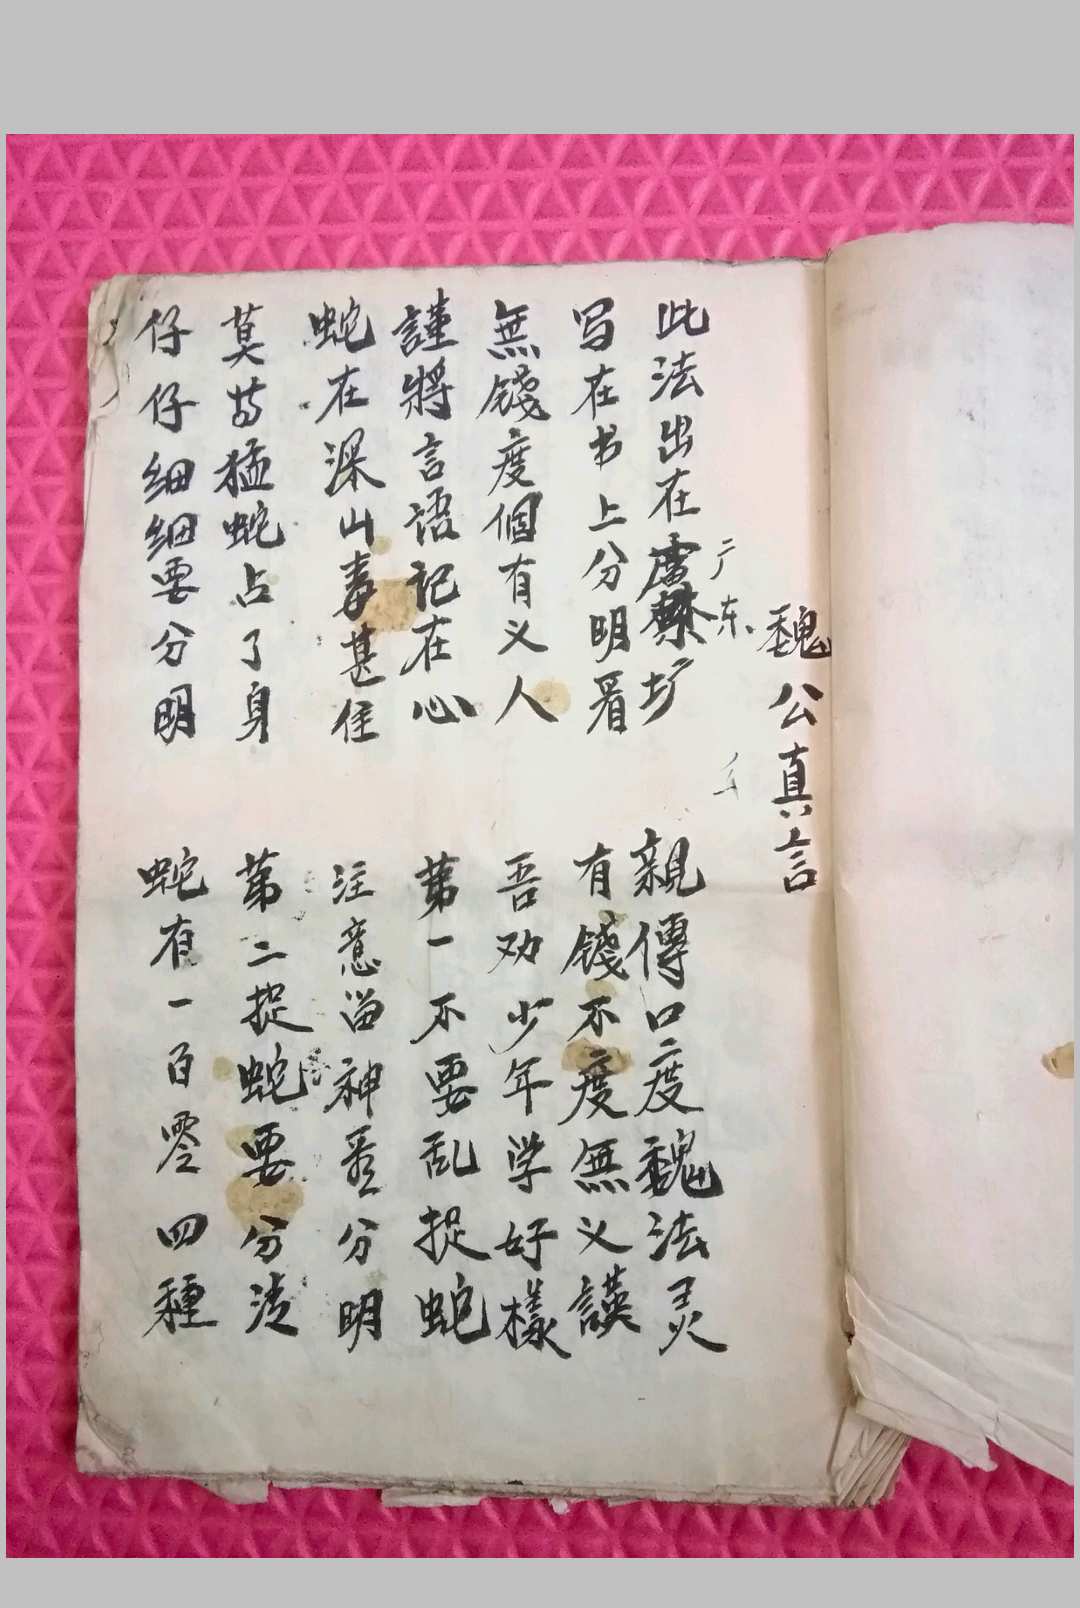 魏公真言
广东
此法出在 圹 親傳口度魏法灵
写在书上分明看 有錢不度無义
無錢度個有义人 吾劝少年学好樣
謹將言語记在心 第一不要乱捉蛇
蛇在深山毒甚 注意 神 分明
莫 猛蛇占了身 第二捉蛇要分法
仔仔细细要分明 蛇有一百零四種